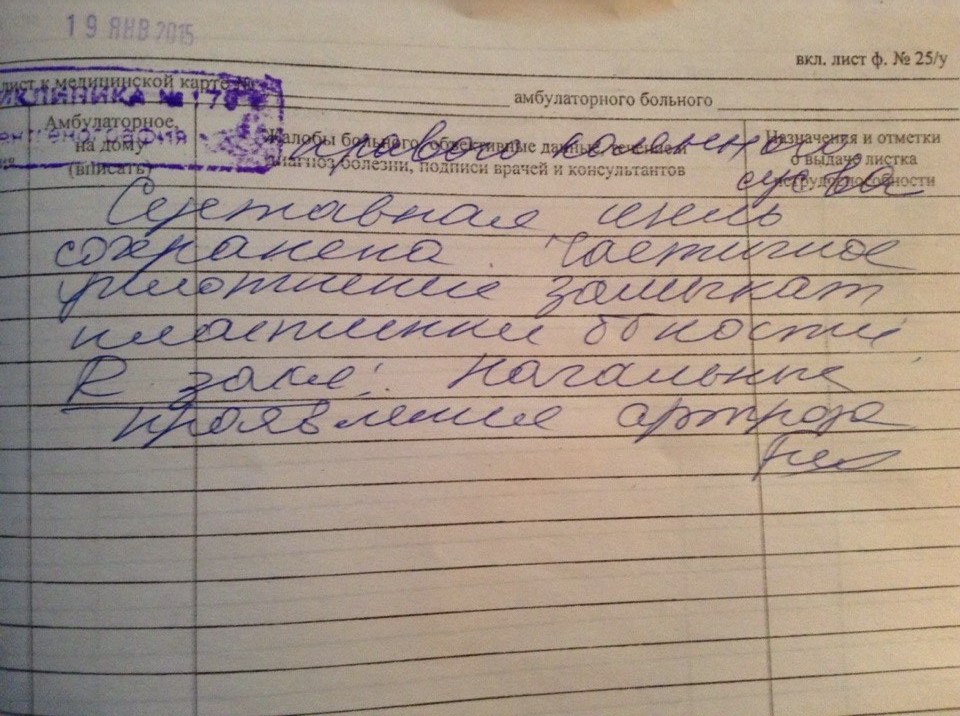 19 ЯНВ 2015
вкл. лист ф. № 25/у
лист к медицинской карте №
амбулаторного больного
ИКЛИНИКА № 78
Амбулаторное, на дому (вписать)
Жалобы больного, объективные данные, течение
диагноз болезни, подписи врачей и консультантов
Назначения и отметки
о выдаче листка
нетрудоспособности
ентгенография
правого коленного
суст-ва
Суставная щель
сохранена. Частичное
уплотнение замыкат
пластинки б б кости
R закл: Начальные
проявления артроза